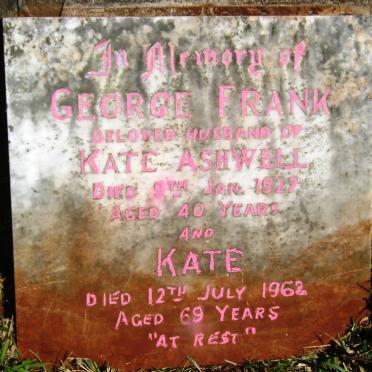 In Memory of
GEORGE FRANK
BELOVED HUSBAND OF
KATE ASHWELL
DIED 9TH JAN. 1927
AGED 40 YEARS
AND
KATE
DIED 12TH JULY 1962
AGED 69 YEARS
"AT REST"